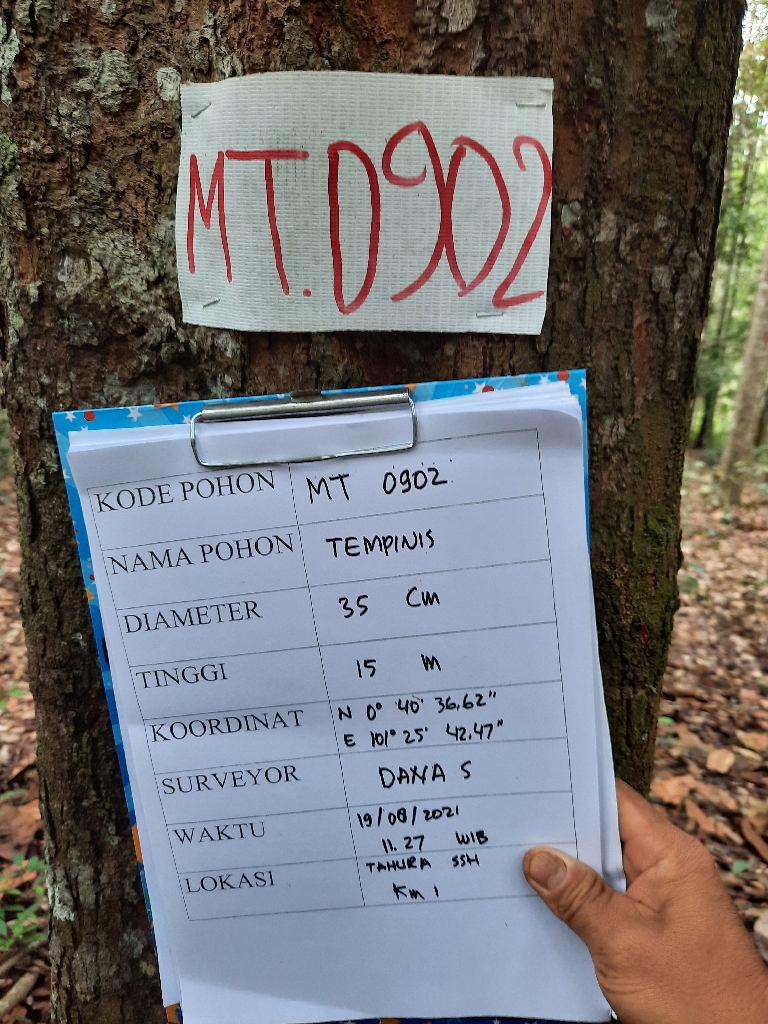 MT.0902
KODE POHON MT 0902
NAMA POHON TEMPINIS
DIAMETER 35 Cm
TINGGI 15 m
KOORDINAT N 0° 40' 36,62"
E 101° 25' 42,47"
SURVEYOR DAXA S
WAKTU 19/08/2021
11.27 WIB
LOKASI TAHURA SSH
Km 1